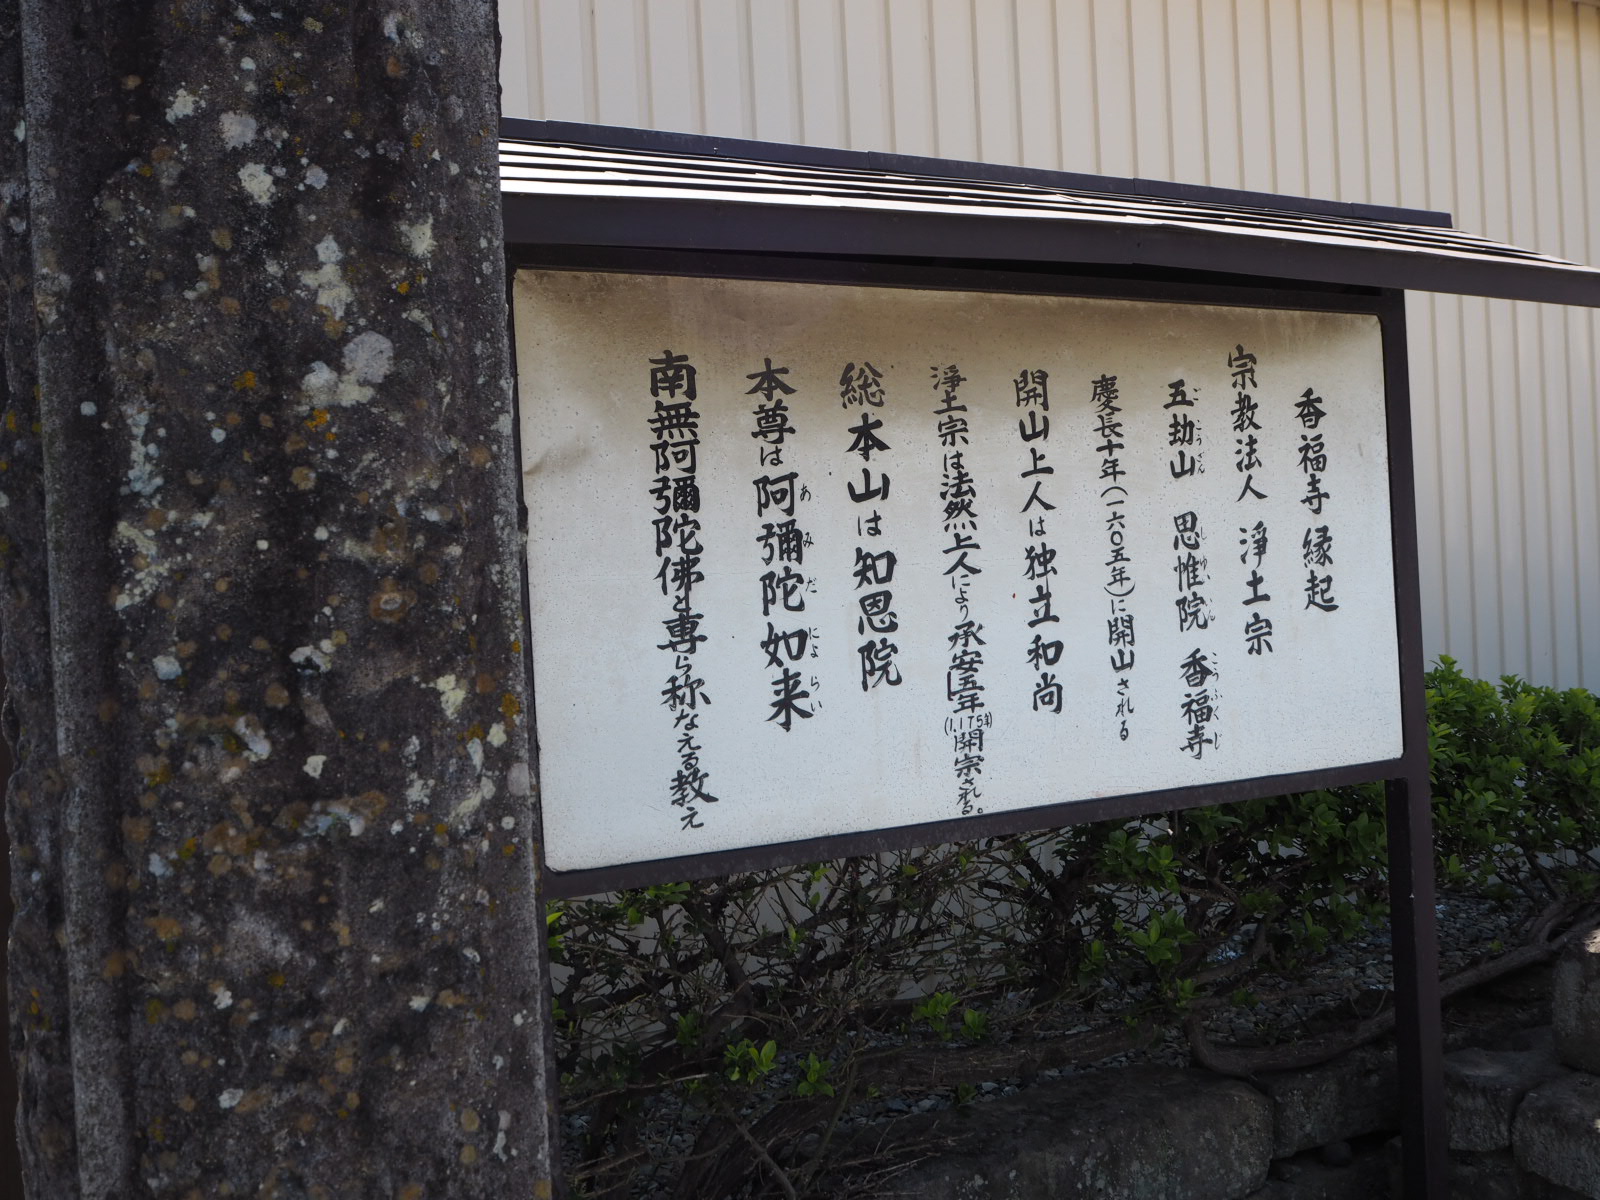 香福寺 縁起
宗教法人 淨土宗
五劫山 思惟院 香福寺
ごこうざん しゆいいん こうふくじ
慶長十年(一六〇五年)に開山される
開山上人は独立和尚
淨土宗は法然上人により承安五年(1,175年)開宗される。
総本山は知恩院
本尊は阿彌陀如来
あみだによらい
南無阿彌陀佛と専ら称なえる教え